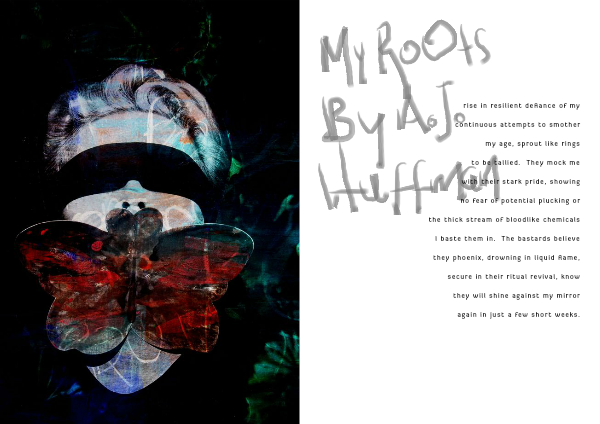 My RoOts
By A.J.
Huffman
rise in resilient deRance of my
continuous attempts to smother
my age, sprout like rings
to be tallied. They mock me
with their stark pride, showing
no fear of potential plucking or
the thick stream of bloodlike chemicals
I baste them in. The bastards believe
they phoenix, drowning in liquid Rame,
secure in their ritual revival, know
they will shine against my mirror
again in just a few short weeks.